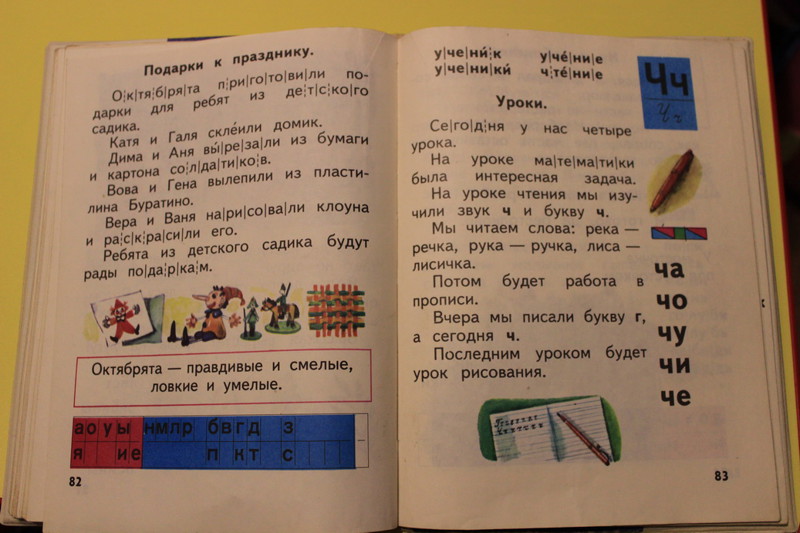 Подарки к празднику.
О|к|тя|б|ря|та п|ри|го|то|ви|ли по-
дарки для ребят из де|т|с|ко|го
садика.
Катя и Галя скле́или домик.
Дима и Аня вы́|ре|за|ли из бумаги
и картона со|л|да|ти|ко|в.
Вова и Гена вылепили из пласти-
лина Буратино.
Вера и Ваня на|ри|со|ва|ли клоуна
и ра|с|к|ра|си|ли его.
Ребята из детского садика будут
рады по|да|р|ка|м.
Октябрята — правдивые и смелые,
ловкие и умелые.
а о у ы н м л р б в г д з
я и е п к т с
82
у|че|ни́|к у|че́|ни|е
у|че|ни|ки́ ч|те́|ни|е
Чч
Чч
Уроки.
Се|го|д|ня у нас четыре
урока.
На уроке ма|те|ма|ти|ки
была интересная задача.
На уроке чтения мы изу-
чили звук ч и букву ч.
Мы читаем слова: река —
речка, рука — ручка, лиса —
лисичка.
Потом будет работа в
прописи.
Вчера мы писали букву г,
а сегодня ч.
Последним уроком будет
урок рисования.
ча
чо
чу
чи
че
83